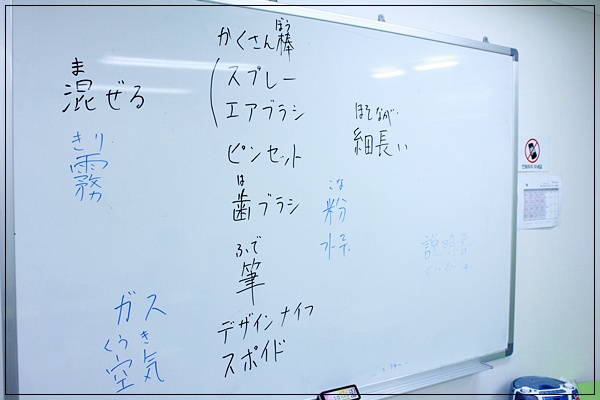 ま
混ぜる
きり
霧
ガス
くうき
空気
ぼう
かくさん棒
スプレー
エアブラシ
ピンセット
は
歯ブラシ
ふで
筆
デザインナイフ
スポイド
ほそなが
細長い
こな
粉
説明書